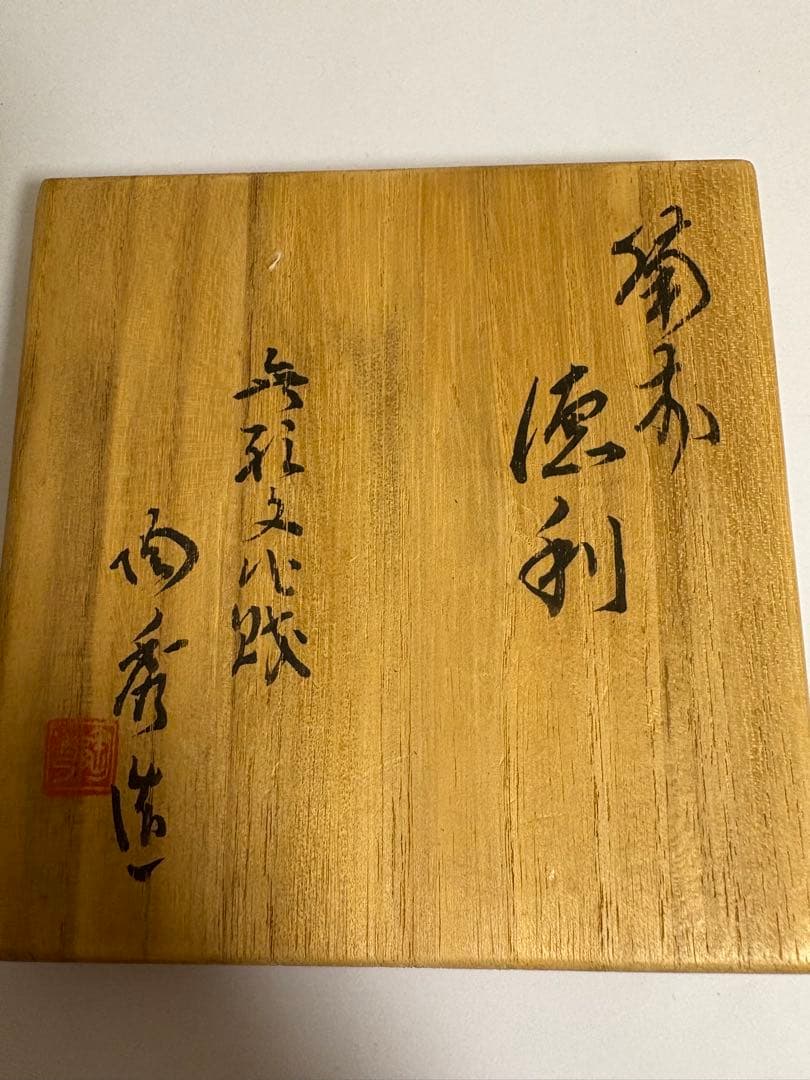 備前
徳利
無形文化財
陶秀造